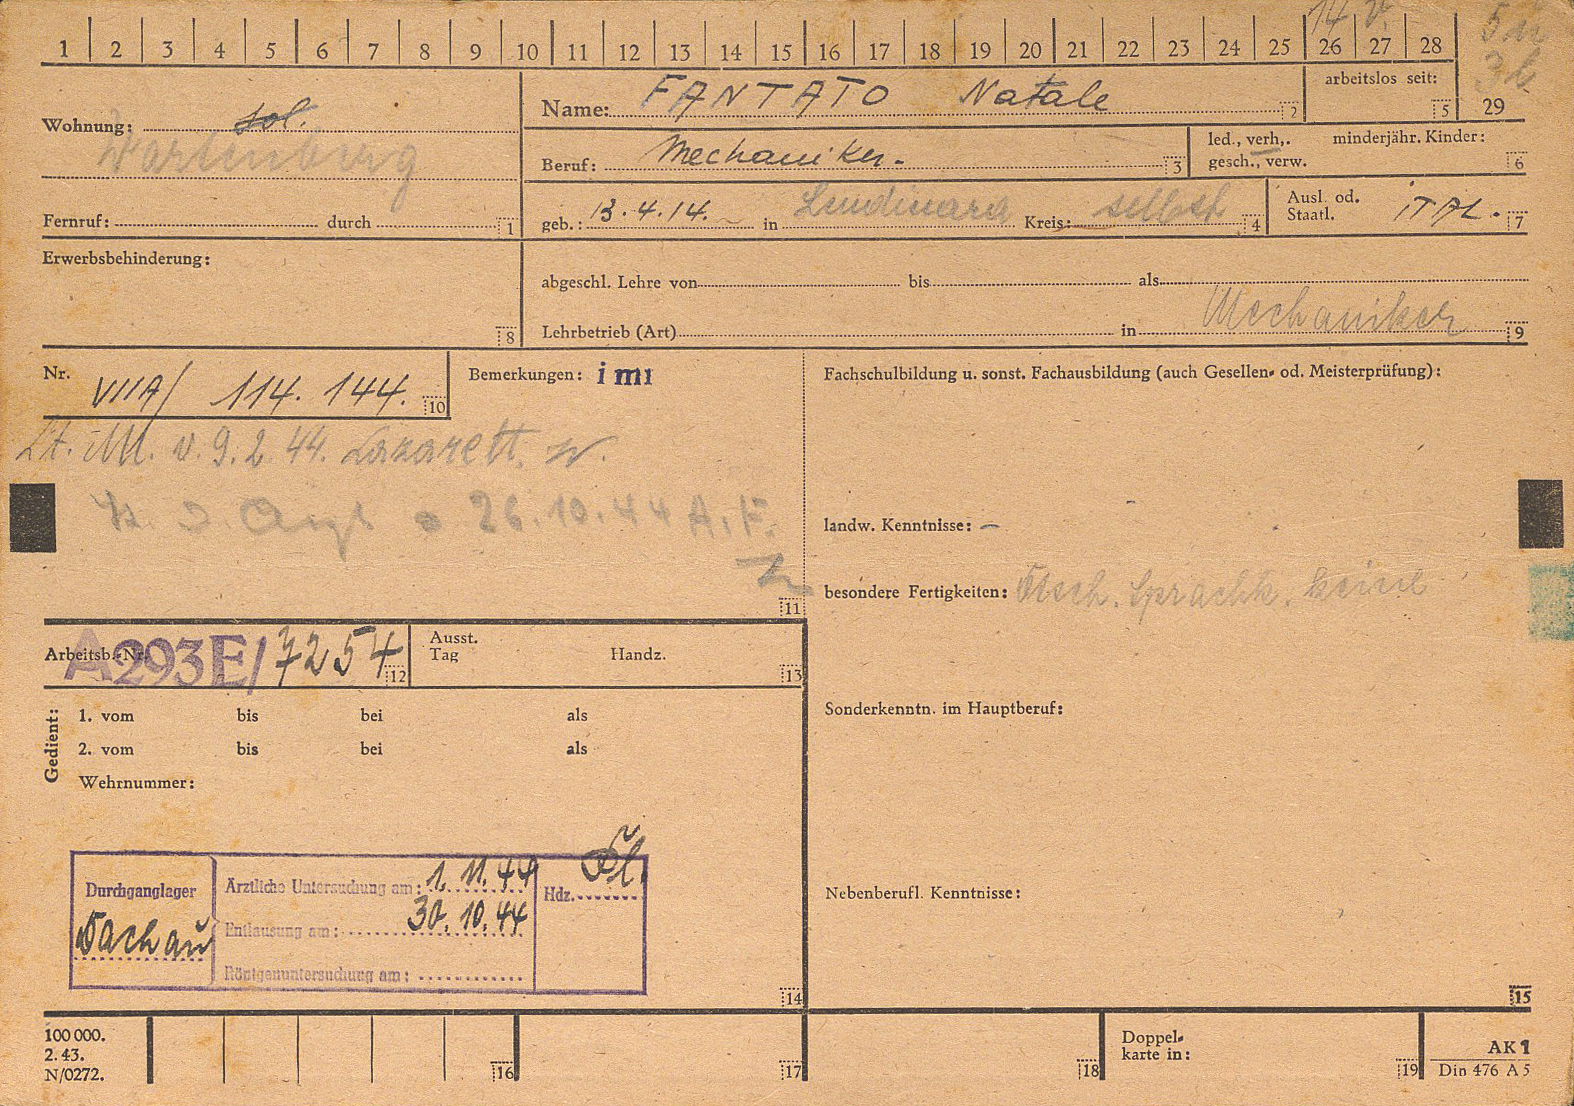 1 2 3 4 5 6 7 8 9 10 11 12 13 14 15 16 17 18 19 20 21 22 23 24 25 26 27 28
14 V.
29
Wohnung: sol.
Wartenberg
Fernruf: durch 1
Name: FANTATO Natale 2
arbeitslos seit: 5
Beruf: Mechaniker. 3
led., verh,. minderjähr. Kinder:
gesch., verw. 6
geb.: 13.4.14. in Lendinara Kreis: selbst 4
Ausl. od.
Staatl. ITAL. 7
Erwerbsbehinderung:
8
abgeschl. Lehre von bis als
Lehrbetrieb (Art) in Mechaniker 9
Nr. VIIA/ 114.144. 10
Bemerkungen: imi
Lt. M. v. 9.2.44. Lazarett.
26.10.44 A.F.
11
Fachschulbildung u. sonst. Fachausbildung (auch Gesellen- od. Meisterprüfung):
landw. Kenntnisse: –
besondere Fertigkeiten: Dtsch. Sprachk. keine
Sonderkenntn. im Hauptberuf:
Nebenberufl. Kenntnisse:
15
Arbeitsb.-Nr. A293E/7254 12
Ausst.
Tag Handz. 13
Gedient:
1. vom bis bei als
2. vom bis bei als
Wehrnummer:
Durchganglager
Dachau
Ärztliche Untersuchung am: 1.11.44
Entlausung am: 30.10.44
Röntgenuntersuchung am:
Hdz.
14
100 000.
2. 43.
N/0272.
16
17
18
Doppel-
karte in: 19
AK1
Din 476 A 5